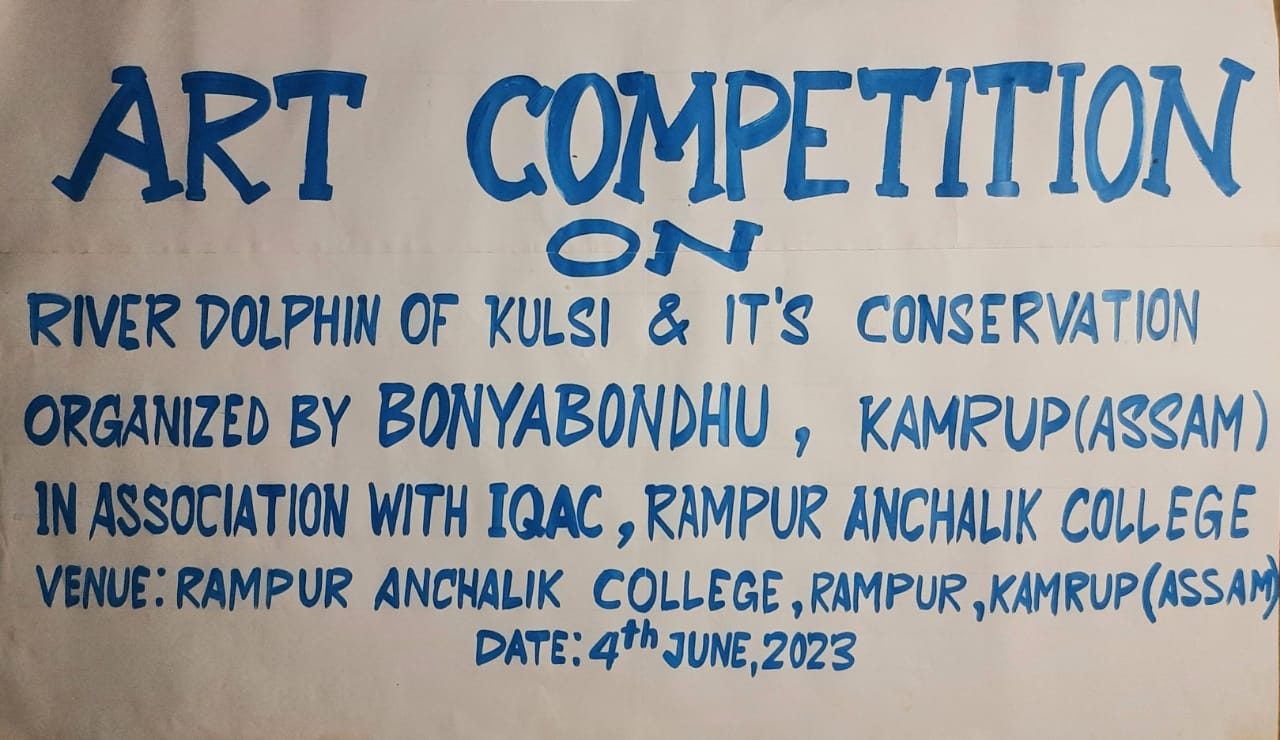 ART COMPETITION
ON
RIVER DOLPHIN OF KULSI & IT'S CONSERVATION
ORGANIZED BY BONYABONDHU, KAMRUP(ASSAM)
IN ASSOCIATION WITH IQAC, RAMPUR ANCHALIK COLLEGE
VENUE: RAMPUR ANCHALIK COLLEGE, RAMPUR, KAMRUP(ASSAM)
DATE: 4th JUNE, 2023